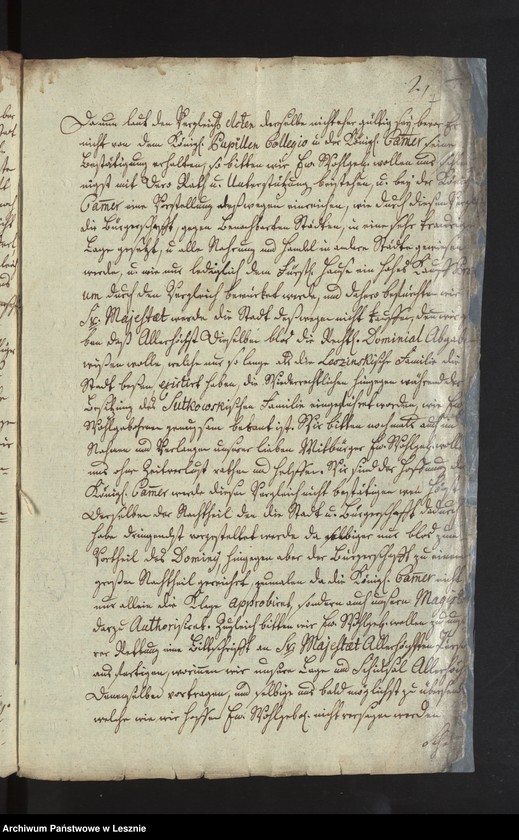 Darum laut den Vergleichs Acten derselbe nicht eher gültig sey, bevor er
nicht von dem Königl. Pupillen Collegio u der Königl. Cammer seine
Bestätigung erhalten, so bitten wir Ew. Wohlgeb. wollen uns
nigst mit Dero Rath u. Unterstützung beystehen, u. bei der Königl.
Cammer eine Vorstellung deswegen einreichen, wie durch diesen Vergleich
die Bürgerschafft, gegen benachbarten Städten, in eine sehr traurige
Lage gesetzt, u alle Nahrung und Handel in andere Städte gewiesen
werde, u. wie nur lediglich dem Fürstl. Hause ein hohes Kauff
um durch den Vergleich bewirket werde, und dahero befürchten wir
Sr. Majestæt werde die Stadt deswegen nicht kauffen, denn wir
ben daß Allerhöchst Dieselben blos die Rechts Dominial Abgaben
wissen wolle welche nur so lange als die Leszinskische Familie die
Stadt besessen existiert haben, die Wiederrechtlichen hingegen während der
Besitzung der Sutkowskischen Familie eingeführt worden, wie Ew.
Wohlgebohren genugsam bekant ist. Wir bitten nochmals auf
Nahmen und Verlangen unserer lieben Mitbürger Ew. Wohlgeb. wollen
uns ohne Zeitverlust rathen und helffen. Wir sind der Hoffnung die
Königl. Cammer werde diesen Vergleich nicht bestätigen wenn
Derselben der Nachtheil den die Stadt u. Bürgerschafft dadurch
habe dringendst vorgestellet werde da selbiger nur blos zum
Vortheil des Dominy hingegen aber der Bürgerschafft zu einem
großen Nachtheil gereicht, zumalen da die Königl. Camer nicht
nur allein die Klage approbiret, sondern auch unsern Magistrat
darzu Authorisiret. Zugleich bitten wir Ew. Wohlgeb. wollen zu
rer Rettung eine Bittschrifft an Sr. Majestæt Allerhöchsten Person
aus fertigen, worinnen wir unsere Lage und Schicksal Allerhöchst
Denenselben vortragen, und selbige uns bald möglichst zu übersenden
welche wie wir hoffen Ew. Wohlgeb. nicht versagen werden
Archiwum Państwowe w Lesznie